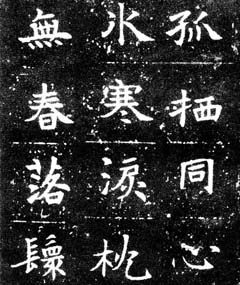 孤栖同心
氷寒淚枕
無春落鬟